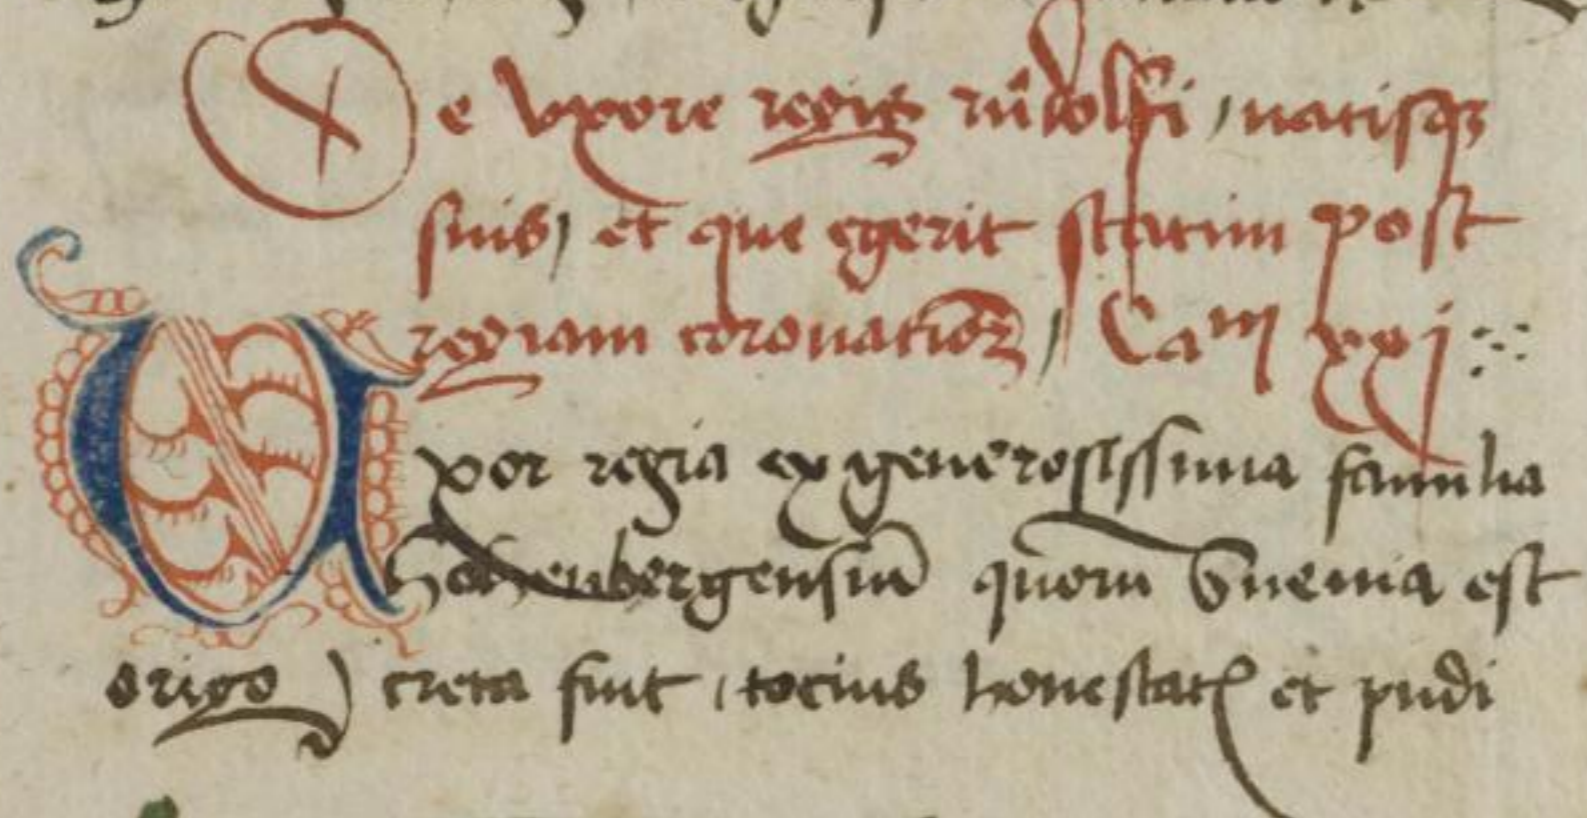 De vxore regis růdolfi, natisqꝫ
suis, et que egerit statim post
regiam coronacioꝫ, Camͫ xxj
Uxor regia ex generosissima familia
Hohenbergensiū quorū vnenia est
origo) creta fuit, tocius honestatꝭ et pudi